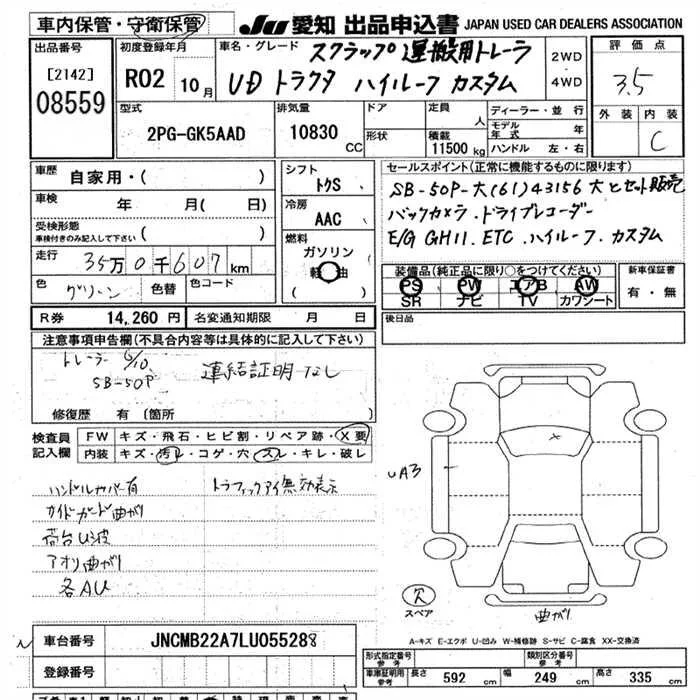 車内保管・守衛保管
JU 愛知 出品申込書 JAPAN USED CAR DEALERS ASSOCIATION
出品番号
[2142]
08559
初度登録年月
R02 10月
車名・グレード
スクラップ運搬用トレーラ
UD トラクタ ハイルーフ カスタム
2WD
4WD
評価点
3.5
外装 内装
C
型式
2PG-GK5AAD
排気量
10830 CC
ドア
形状
定員 人
積載 11500 kg
ディーラー・並行
モデル年式 年
ハンドル 左・右
車歴 自家用・( )
車検 年 月( 日)
受検形態
車検付きのみ記入して下さい ( )
走行 35万0千607km
色 グリーン 色替 色コード
シフト
トクS
冷房
AAC
燃料
ガソリン
軽油
( )
セールスポイント(正常に機能するものに限ります)
SB-50P-大(61)43156 大とセット販売
バックカメラ.ドライブレコーダー
E/G GH11. ETC. ハイルーフ. カスタム
装備品(純正品に限り○をつけてください)
PS PW エアB AW
SR ナビ TV カワシート
新車保証書
有・無
R券 14,260円 名変通知期限 月 日
後日品
注意事項申告欄(不具合内容等は具体的に記入して下さい)
トレーラー 6/10
SB-50P 連結証明なし
修復歴 有〔箇所 〕
検査員記入欄
FW キズ・飛石・ヒビ割・リペア跡・X要
内装 キズ・汚レ・コゲ・穴・スレ・キレ・破レ
ハンドルカバー有 トラフィックアイ無効表示
サイドガード曲がり
荷台U波
アオリ曲がり
各AU
UA3
X
欠
スペア
曲がり
A-キズ E-エクボ U-凹み W-補修跡 S-サビ C-腐食 XX-交換済
車台番号 JNCMB22A7LU055288
登録番号
形式指定番号 参考
類別区分番号 参考
車庫証明用 参考 長さ 592 幅 249 高さ 335